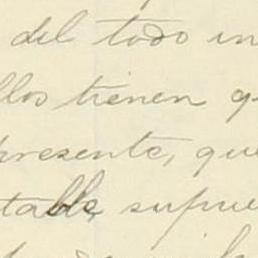 del todo in
llos tienen q
presente, que
table, supue